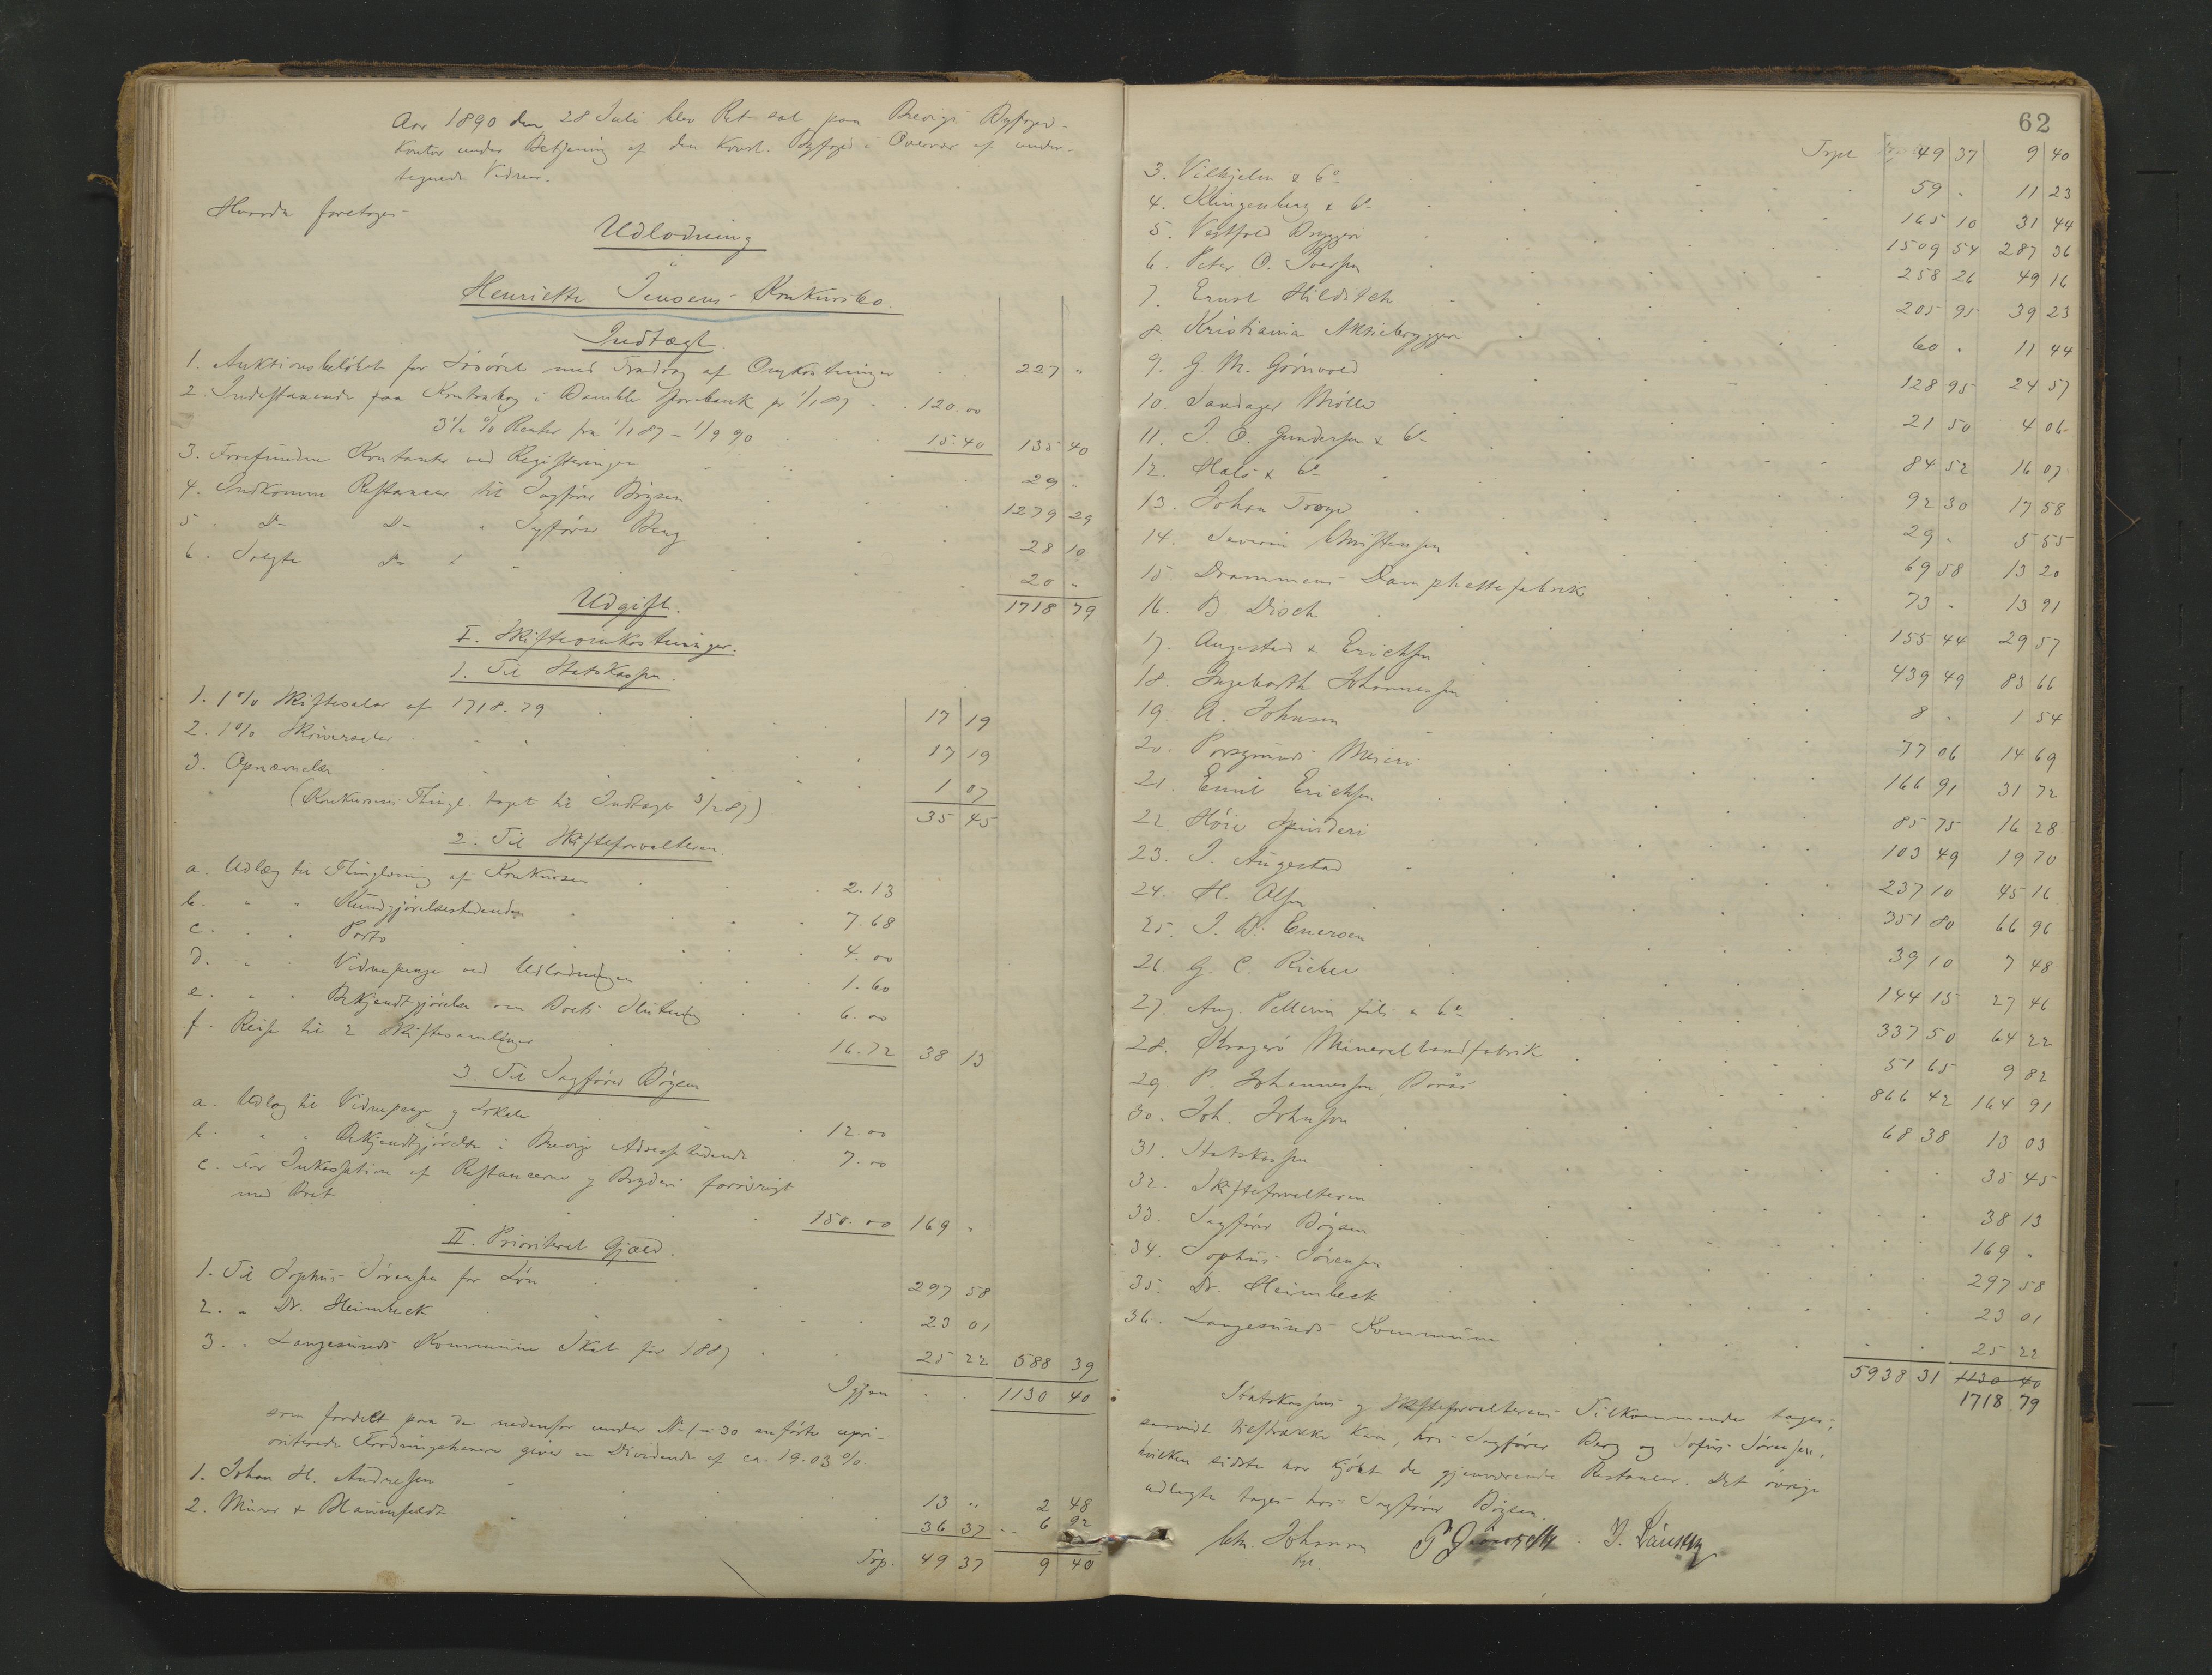 Aar 1890 den 28 Juli blev Ret sat paa Brevigs Byfoged-
Kontor under Betjening af den Konst. Byfoged i Overvær af under-
tegnede Vidner.
Hvorda foretoges
Udlodning
i
Henriette Jensens Konkursbo.
Indtægt.
1. Auktionsbeløbet for Løsøret med Fradrag af Omkostninger 227 "
2. Indestaaende paa Kontrabog i Bamble Sparebank pr 1/1 87 120.00
3 1/2 % Renter fra 1/1 87 - 1/9 90 15.40 135 40
3. Forefundne Kontanter ved Registeringen 29 "
4. Indkomne Restancer til Sagfører Bøysen 1279 29
5. Do Do " Sagfører Berg 28 10
6. Solgte Do " " 20 "
1718 79
Udgift.
I. Skifteomkostninger.
1. Til Statskassen.
1. 1% Skiftesalær af 1718.79 17 19
2. 1% Skriversalær " " 17 19
3. Opnævnelse 1 07
(Konkursens Thingl. taget til Indtægt 3/2 87) 35 45
2. Til Skifteforvalteren.
a. Udlæg til Thinglæsning af Konkursen 2.13
b. " " Kundgjørelsestidenden 7.68
c. " " Porto 4.00
d. " " Vidnepenge ved Udlodningen 1.60
e. " " Bekjendtgjørelse om Boets Slutning 6.00
f. Reise til 2 Skiftesamlinger 16.72 38 13
3. Til Sagfører Bøysen
a. Udlæg til Vidnepenge og Lokale 12.00
b. " " Bekjendtgjørelse i Brevigs Adressetidende 7.00
c. For Inkassation af Restancerne og Bryderi forøvrigt
med Boet 150.00 169 "
II. Prioriteret Gjæld.
1. Til Sophus Sørensen for Løn 297 58
2. " Dr. Heimbeck 23 01
3. " Langesunds Kommune Skat for 1887 25 22 588 39
Igjen 1130 40
som fordelt paa de nedenfor under No 1-30 anførte upri-
oriterede Fordringshavere giver en Dividende af ca. 19.03 %.
1. Johan H. Andresen 13 " 2 48
2. Münver & Blauenfeldt 36 37 6 92
Trsp. 49 37 9 40
62
Trpt 49 37 9 40
3. Vilhjelm & Co 59 " 11 23
4. Klingenberg & Co 165 10 31 44
5. Vestfold Bryggeri 1509 54 287 36
6. Peter O. Iversen 258 26 49 16
7. Ernst Hilditch 205 95 39 23
8. Kristiania Aktiebryggeri 60 " 11 44
9. G. M. Grönvold 128 95 24 57
10. Sandager Mølle 21 50 4 06
11. J. O. Gundersen & Co 84 52 16 07
12. Hals & Co 92 30 17 58
13. Johan Troye 29 " 5 55
14. Severin Christensen 69 58 13 20
15. Drammens Damphattefabrik 73 " 13 91
16. B. Disch 155 44 29 57
17. Augestad & Erichsen 439 49 83 66
18. Ingeborth Johannessen 8 " 1 54
19. A. Johnsen 77 06 14 69
20. Porsgrunds Meieri 166 91 31 72
21. Emil Erichsen 85 75 16 28
22. Höie Spinderi 103 49 19 70
23. J. Augestad 237 10 45 16
24. H. Olsen 351 80 66 96
25. J. B. Enersen 39 10 7 48
26. G. C. Rieber 144 15 27 46
27. Aug. Pellerin fils & Co 337 50 64 22
28. Kragerö Mineralvandfabrik 51 65 9 82
29. P. Johannesson, Borås 866 42 164 91
30. Joh. Johnson 68 38 13 03
31. Statskassen 35 45
32. Skifteforvalteren 38 13
33. Sagfører Bøysen 169 "
34. Sophus Sörensen 297 58
35. Dr. Heimbeck 23 01
36. Langesunds Kommune 25 22
5938 31 1130 40
1718 79
Statskassens og Skifteforvalterens Tilkommende tages,
saavidt tilstrække kan, hos Sagfører Berg og Sofus Sørensen,
hvilken sidste har kjöbt de gjenværende Restancer. Det øvrige
udlagte tages hos Sagfører Bøysen.
Chr. Johnsen
Kst.